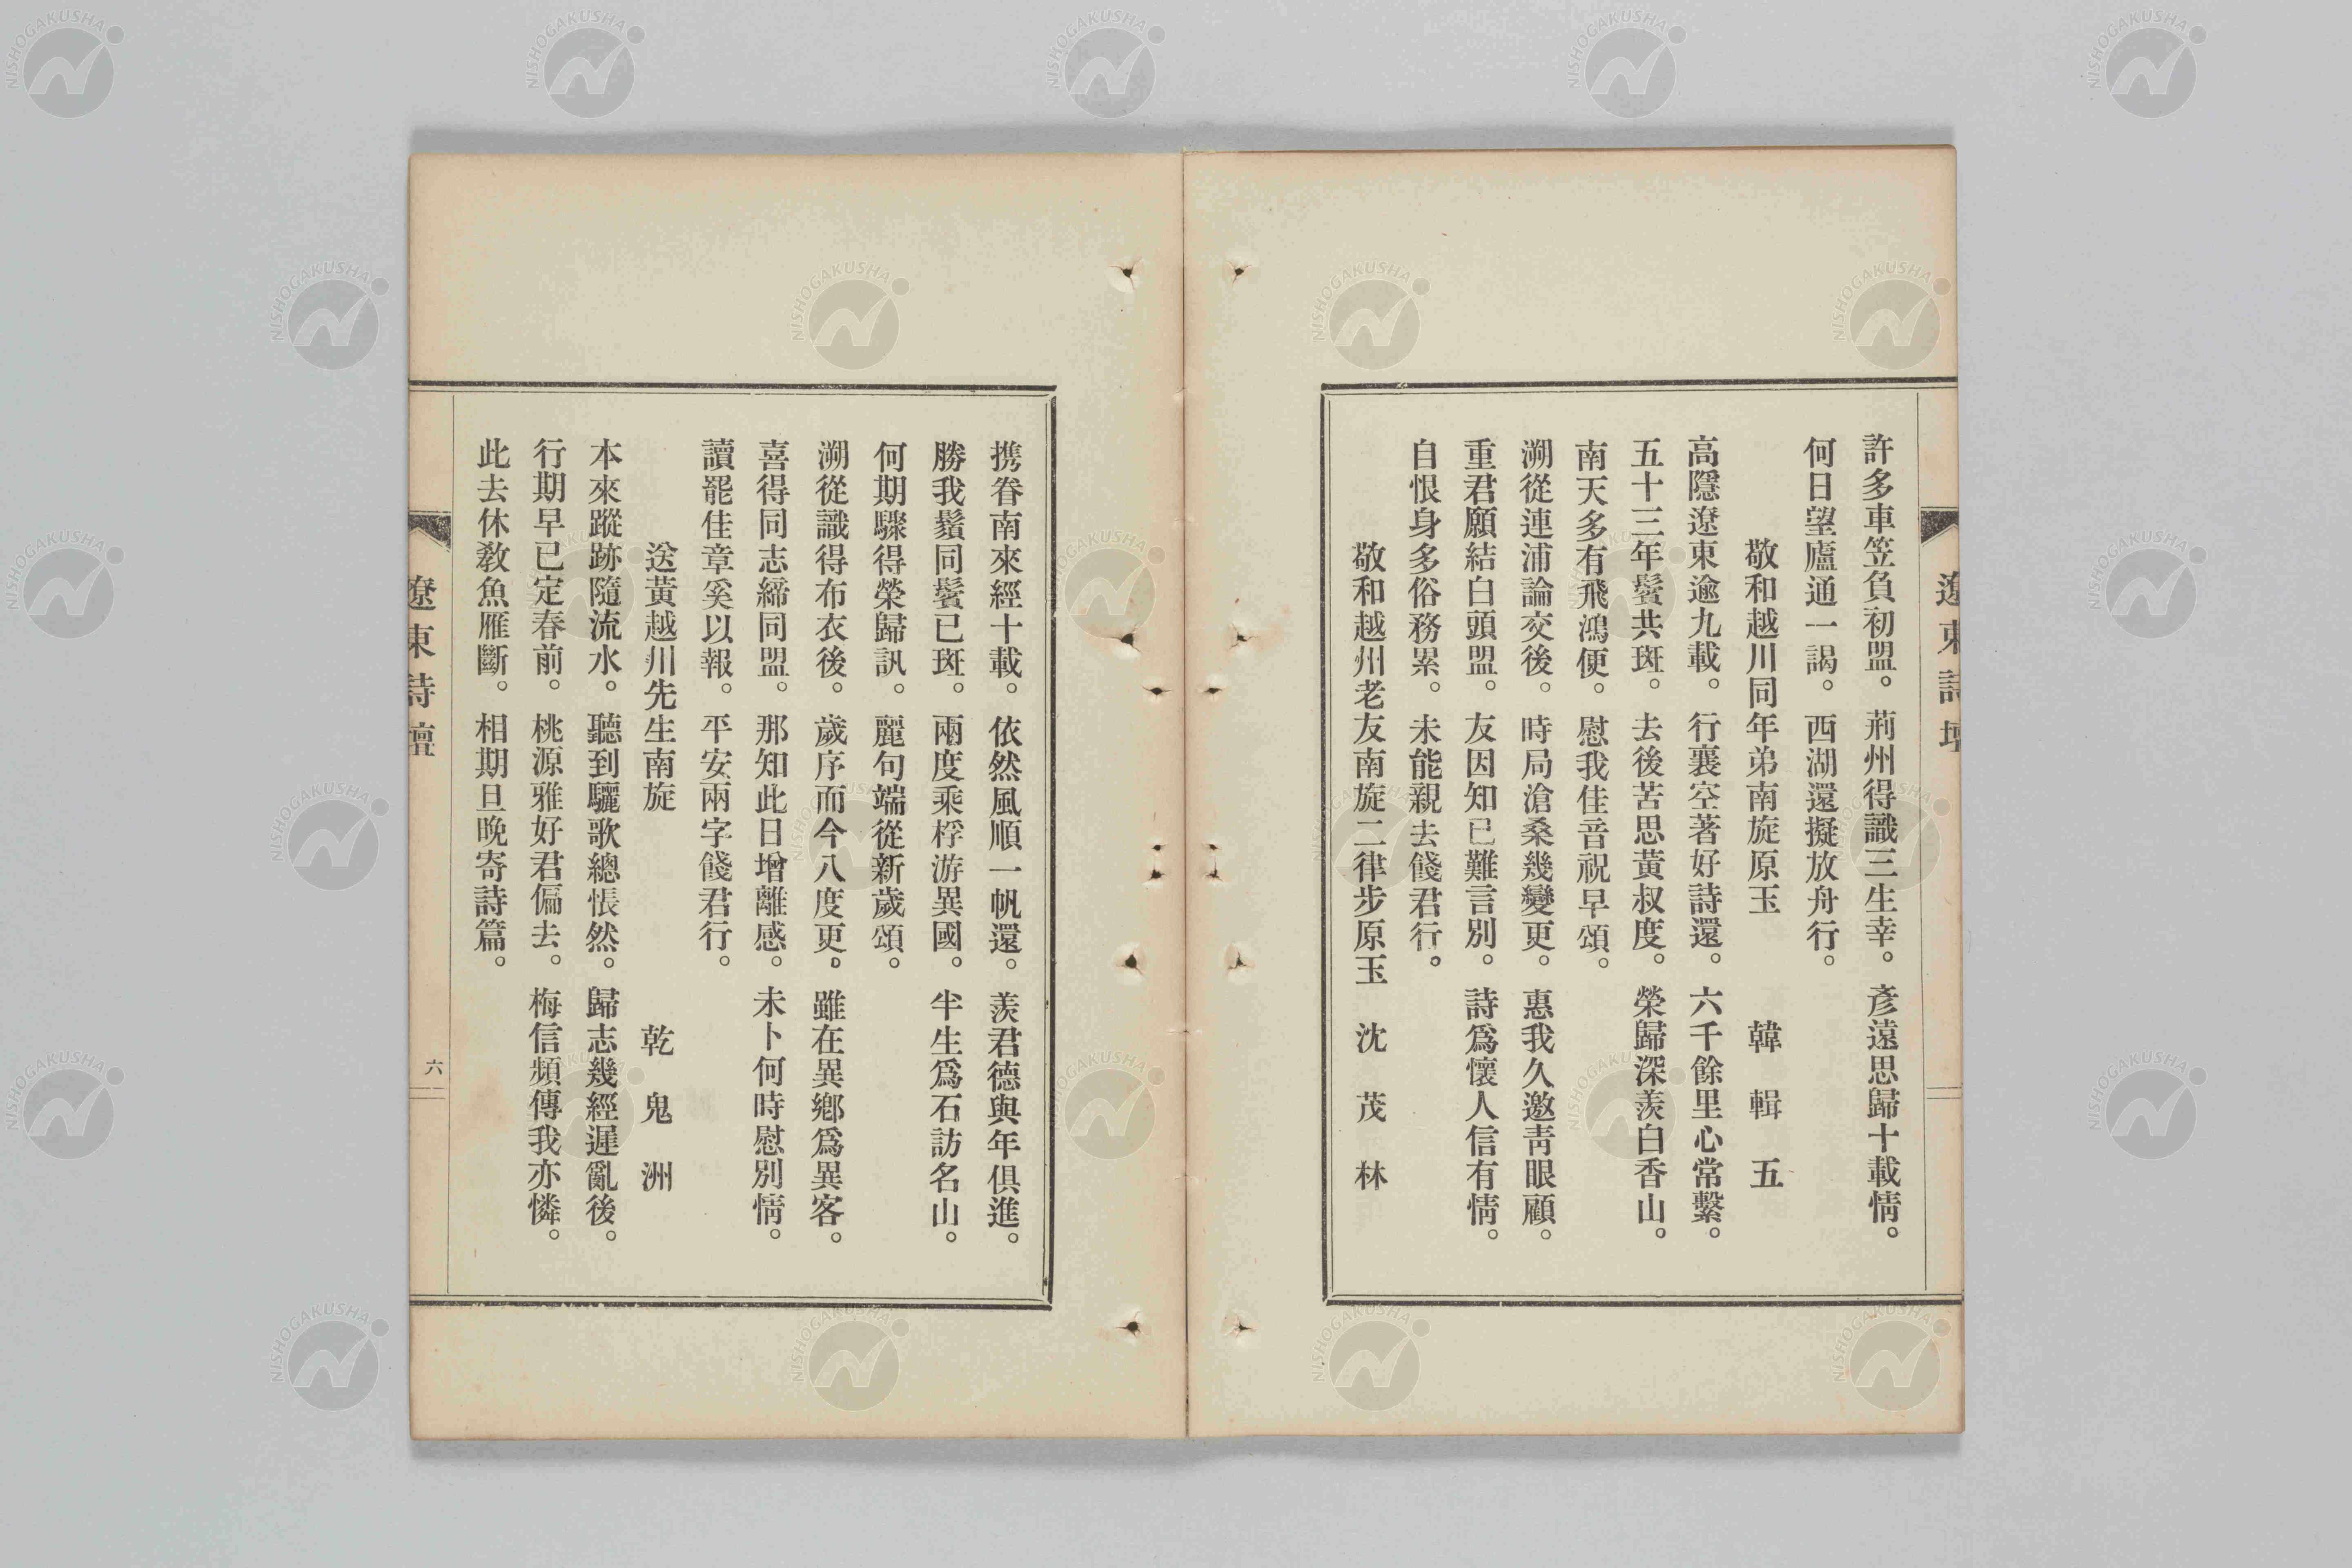 許多車笠負初盟。荊州得識三生幸。彥遠思歸十載情。
何日望廬通一謁。西湖還擬放舟行。
敬和越川同年弟南旋原玉 韓輯五
高隱遼東逾九載。行襄空著好詩還。六千餘里心常繫。
五十三年鬢共斑。去後苦思黃叔度。榮歸深羨白香山。
南天多有飛鴻便。慰我佳音祝早頒。
溯從連浦論交後。時局滄桑幾變更。惠我久邀靑眼顧。
重君願結白頭盟。友因知已難言別。詩爲懷人信有情。
自恨身多俗務累。未能親去餞君行。
敬和越州老友南旋二律步原玉 沈茂林
遼東詩壇
携眷南來經十載。依然風順一帆還。羨君德與年俱進。
勝我鬚同鬢已斑。兩度乘桴游異國。半生爲石訪名山。
何期驟得榮歸訊。麗句端從新歲頒。
溯從識得布衣後。歲序而今八度更。雖在異鄉爲異客。
喜得同志締同盟。那知此日增離感。未卜何時慰別情。
讀罷佳章奚以報。平安兩字餞君行。
送黃越川先生南旋 乾鬼洲
本來蹤跡隨流水。聽到驪歌總悵然。歸志幾經遲亂後。
行期早已定春前。桃源雅好君偏去。梅信頻傳我亦憐。
此去休敎魚雁斷。相期旦晚寄詩篇。
遼東詩壇
六
NISHOGAKUSHA